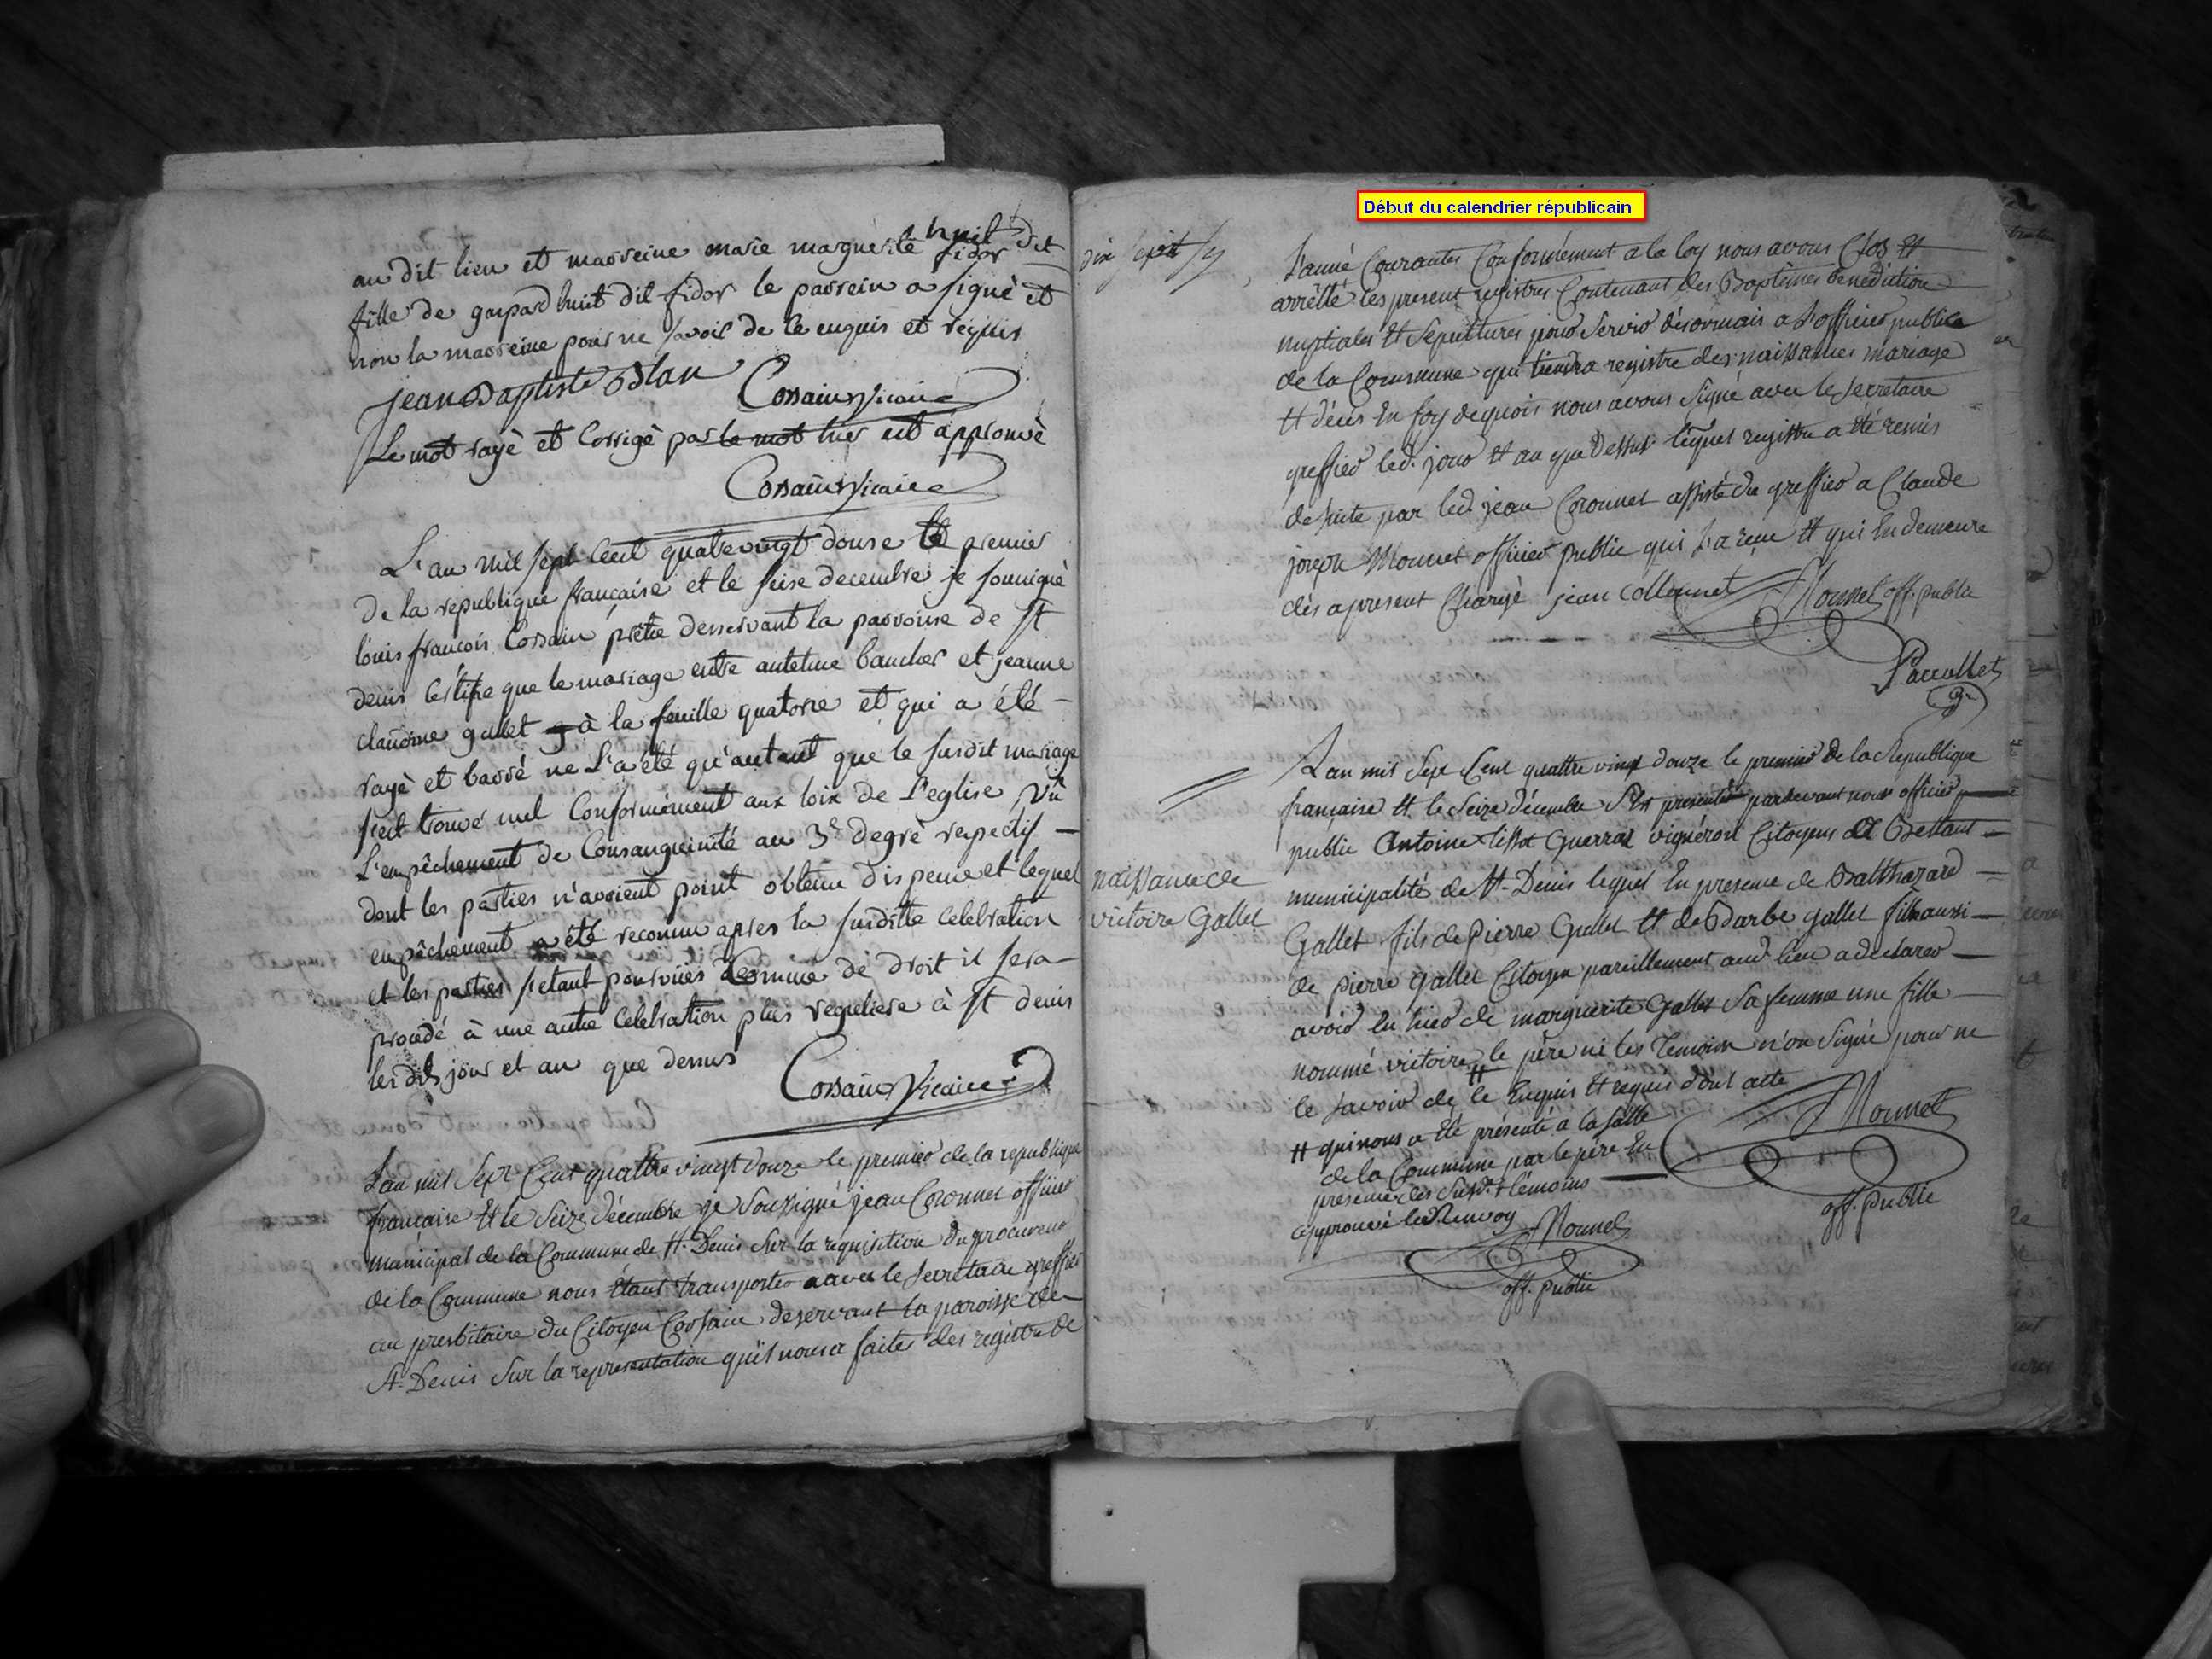 au dit lieu et marreine marie marguerite huit dit
fidor
fille de gaspard huit dit fidor le parrein a signé et
non la marreine pour ne savoir de le enquis et requis
jean Baptiste Blan Cossain Vicaire
Le mot rayé et corrigé par le mot huit est approuvé
Cossain Vicaire
L'an mil sept cent quatrevingt douse le premier
de la republique française et le seise decembre je soussigné
louis françois Cossain prêtre desservant la parroisse de St
denis certifie que le mariage entre antelme baucher et jeanne
claudine gallet à la feuille quatorse et qui a été
rayé et barré ne L'a été qu'autant que le susdit mariage
s'est trouvé nul Conformément aux loix de L'eglise Vû
L'empêchement de Consanguinité au 3e degré respectif
dont les parties n'avoient point obtenu dispense et lequel
empêchement a été reconnu apres la susditte celebration
et les parties s'etant pourvües comme de droit il sera
procedé à une autre celebration plus reguliere à St denis
les dits jour et an que dessus Cossain Vicaire
Lan mil Sept Cent quattre vingt douze le premier de la republique
française et le Seize décembre je Soussigné jean Coronnet officier
municipal de la Commune de St. Denis Sur la requisition du procureur
de la Commune nous étant transporter avec le Secretaire greffier
au presbitaire du Citoyen Cossain deservant la paroisse de
St Denis Sur la representation qu'il nous a faites des registre de
Début du calendrier républicain
dix sept
L'anné Courantes Conformément a la loy nous avons Clos et
arrêtté les present registres Contenant des Baptêmes benediction
nuptiales et Sepultures pour Servir désormais a l'officier publice
de la Commune qui tiendra registre des naissances mariage
et décés En foy de quois nous avons Signé avec le Secretaire
greffier led. jour et an que Dessus lequel registre a été remis
de suite par led. jean Coronnet assisté du greffier a Claude
joseph Monnet officier public qui l'a reçu et qui En demeure
dès apresent Chargé jean collonnet Monnet off. public
Pacallet
Lan mil Sept Cent quattre vingt douze le premier de la Republique
française et le Seize décembre S'est presenté pardevant nous officier
public Antoine tissot Guerraz vigneron Citoyens de Bettant
municipalité de St. Denis lequel En presence de Balthazard
naissance de
victoire Gallet
Gallet fils de Pierre Gallet et de Barbe gallet fille aussi
de pierre gallet Citoyen pareillement aud. lieu a declarer
avoir Eu hier de marguerite Gallet Sa femme une fille
nommé victoire # le père ni les temoin n'on Signé pour ne
le Savoir de le Enquis et requis dont acte
Monnet
off. public
# qui nous a été présenté à la Salle
de la Commune par le père En
presence des Susd. témoins
approuvé le Renvoy
Monnet
off. public